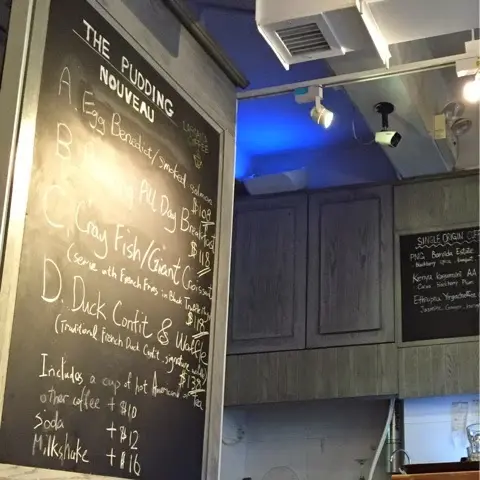 THE PUDDING
NOUVEAU
A. Egg Benedict/ smoked salmon
$108
B. All Day Breakfast
$118
C. Cray Fish/Giant Croissant
(serve with French Fries in Black Truffle
D. Duck Confit & Waffle
(Traditional French Duck Confit, signature waffle)
$138
Includes a cup of hot Americano or Tea
other coffee + $10
Soda + $12
Milkshake + $16
SINGLE ORIGIN
PNG Baroida Estate
Kenya AA
Blackberry Plum
Ethiopia Yirgacheffe
Jasmine, Lemon,